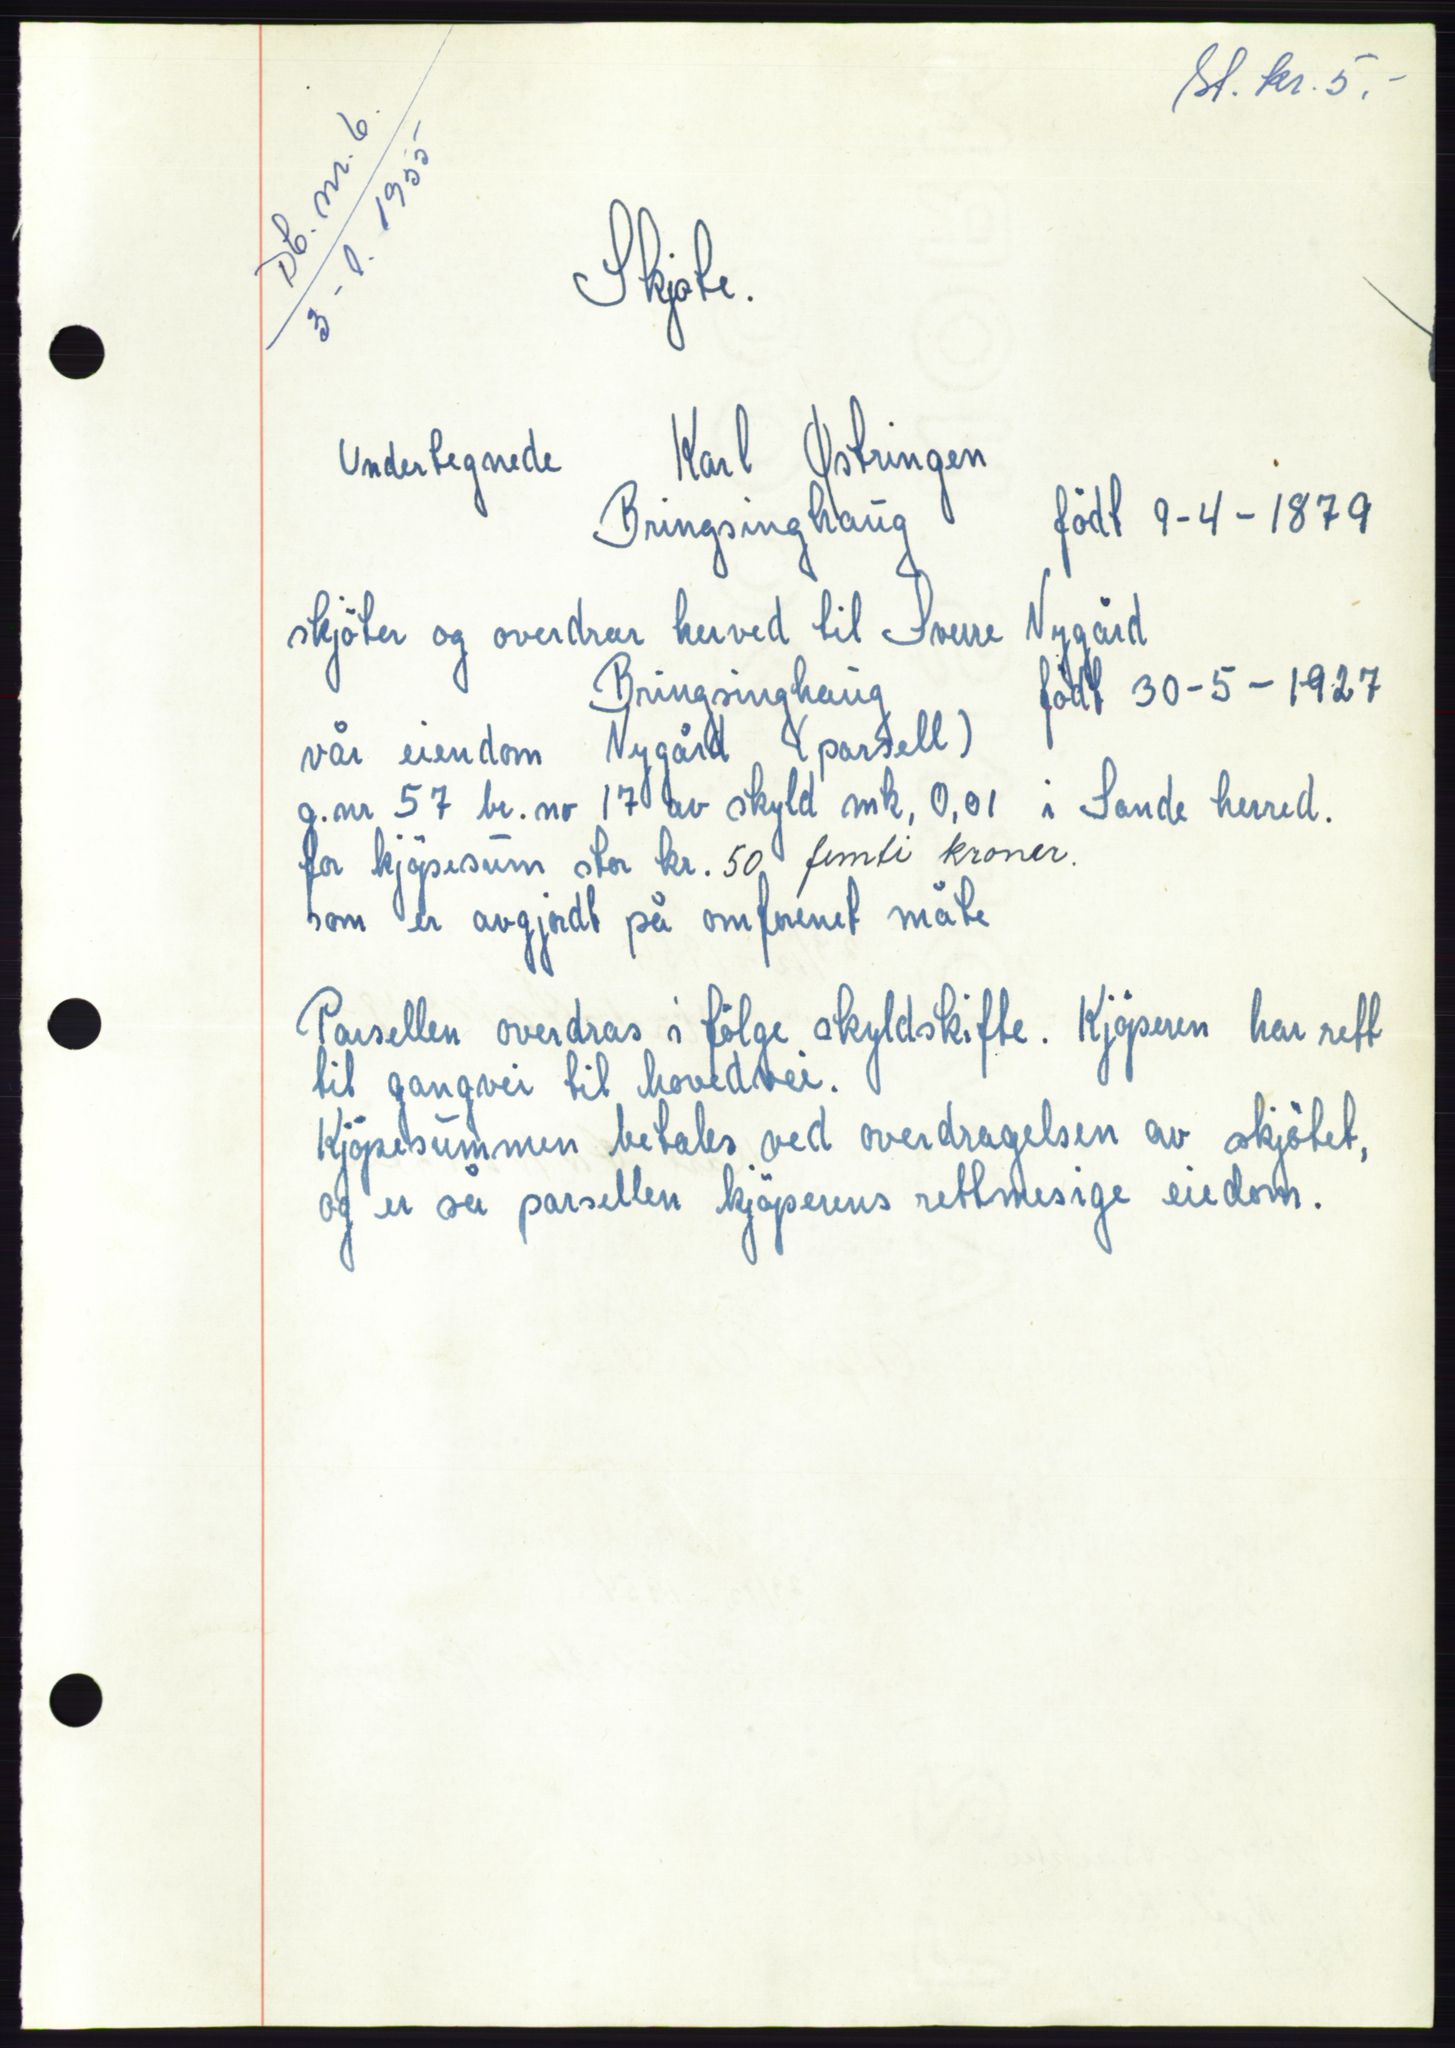 St. kr. 5.-
Db. nr. 6.
3-1. 1955
Skjøte.
Undertegnede Karl Østringen
Bringsinghaug födt 9-4-1879
skjöter og overdrar herved til Sverre Nygård
Bringsinghaug födt 30-5-1927
vår eiendom Nygård (parsell)
g.nr 57 br.no 17 av skyld mk, 0,01 i Sande herred.
for kjöpesum stor kr. 50 femti kroner.
som er avgjordt på omforenet måte
Parsellen overdras i fölge skyldskifte. Kjöperen har rett
til gangvei til hovedvei.
Kjöpesummen betales ved overdragelsen av skjötet,
og er så parsellen kjöperens rettmesige eiedom.